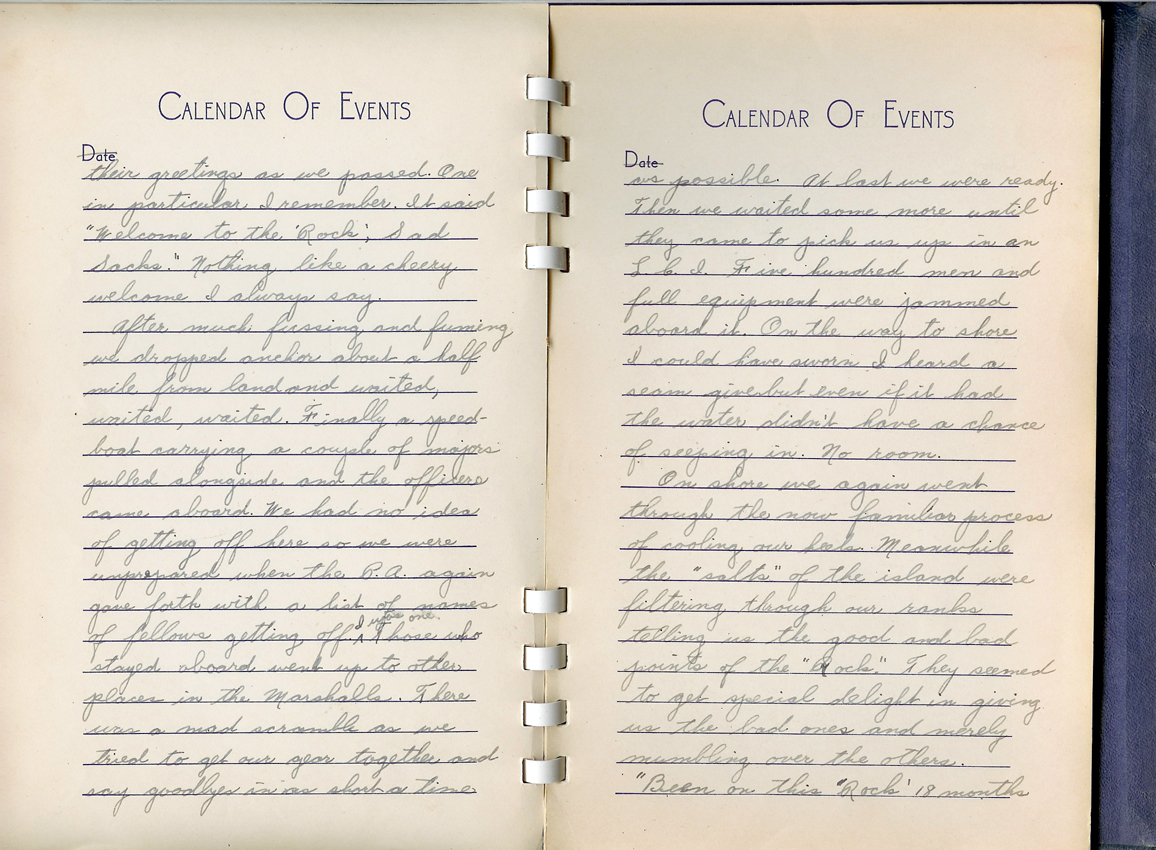 CALENDAR OF EVENTS
Date
their greetings as we passed. One
in particular I remember. It said
"Welcome to the 'Rock', Sad
Sacks." Nothing like a cheery
welcome I always say.
After much fussing and fuming
we dropped anchor about a half
mile from land and waited,
waited, waited. Finally a speed-
boat carrying a couple of majors
pulled alongside and the officers
came aboard. We had no idea
of getting off here so we were
unprepared when the P.A. again
gave forth with a list of names
of fellows getting off. I was one. Those who
stayed aboard went up to other
places in the Marshalls. There
was a mad scramble as we
tried to get our gear together and
say goodbye in as short a time
CALENDAR OF EVENTS
Date
as possible. At last we were ready.
Then we waited some more until
they came to pick us up in an
L.C.I. Five hundred men and
full equipment were jammed
aboard it. On the way to shore
I could have sworn I heard a
seam give but even if it had
the water didn't have a chance
of seeping in. No room.
On shore we again went
through the now familiar process
of cooling our heels. Meanwhile
the "salts" of the island were
filtering through our ranks
telling us the good and bad
points of the "Rock". They seemed
to get special delight in giving
us the bad ones and merely
mumbling over the others.
"Been on this 'Rock' 18 months